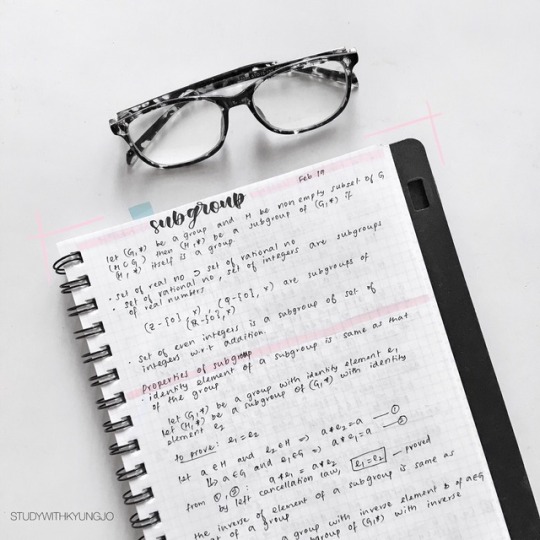 Feb 19
subgroup
let (G,*) be a group and H be non empty subset of G
(H ⊂ G) then (H,*) be a subgroup of (G,*) if
(H,*) itself is a group
• set of real no ⊃ set of rational no
• set of rational no, set of integers are subgroups
of real numbers
(Z-[0], x) (Q-[0], x) are subgroups of
(R-[0], x)
• set of even integers is a subgroup of set of
integers w.r.t addition
Properties of subgroup
• identity element of a subgroup is same as that
of the group
let (G,*) be a group with identity element e₁
let (H,*) be a subgroup of (G,*) with identity
element e₂
to prove: e₁ = e₂
let a ∈ H and e₂ ∈ H => a*e₂ = a — ①
↳ a ∈ G and e₁ ∈ G => a*e₁ = a — ②
from ①, ②: a*e₁ = a*e₂
by left cancellation law, e₁ = e₂ — proved
• the inverse of element of a subgroup is same as
of a group
a group with inverse element b of a∈G
subgroup of (G,*) with inverse
STUDYWITHKYUNGJO